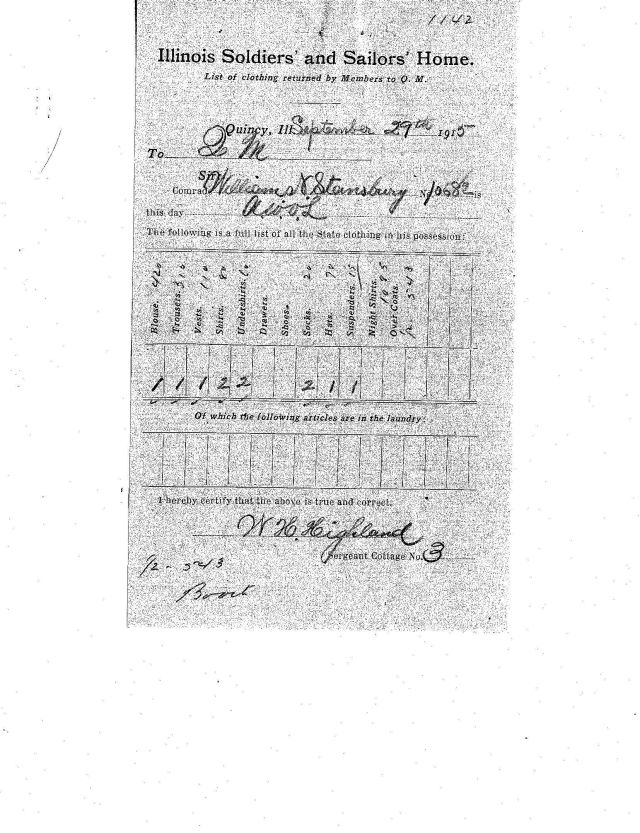 1142
Illinois Soldiers' and Sailors' Home.
List of clothing returned by Members to Q. M.
Quincy, Ill. September 29th 1915
To Q M
Sir:
Comrade William N Stansbury No 10682 is
this day A.W.O.L
The following is a full list of all the State clothing in his possession:
Blouse. 420
Trousers. 310
Vests. 110
Shirts. 80
Undershirts.
Drawers.
Shoes.
Socks. 20
Hats. 70
Suspenders. 15
Night Shirts.
Over Coats. 1085
1/2 543
1 1 1 2 2 2 1 1
Of which the following articles are in the laundry:
I hereby certify that the above is true and correct.
W H. Highland
Sergeant Cottage No. 3
1/2 - 543